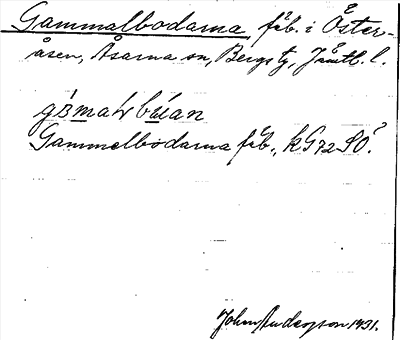 Gammalbodarna fäb. i Öster-
åsen, Åsarna sn, Bergs tg, Jämtl. l.
Gammelbodarna fäb., kG72SO.
John Anderson 1931.